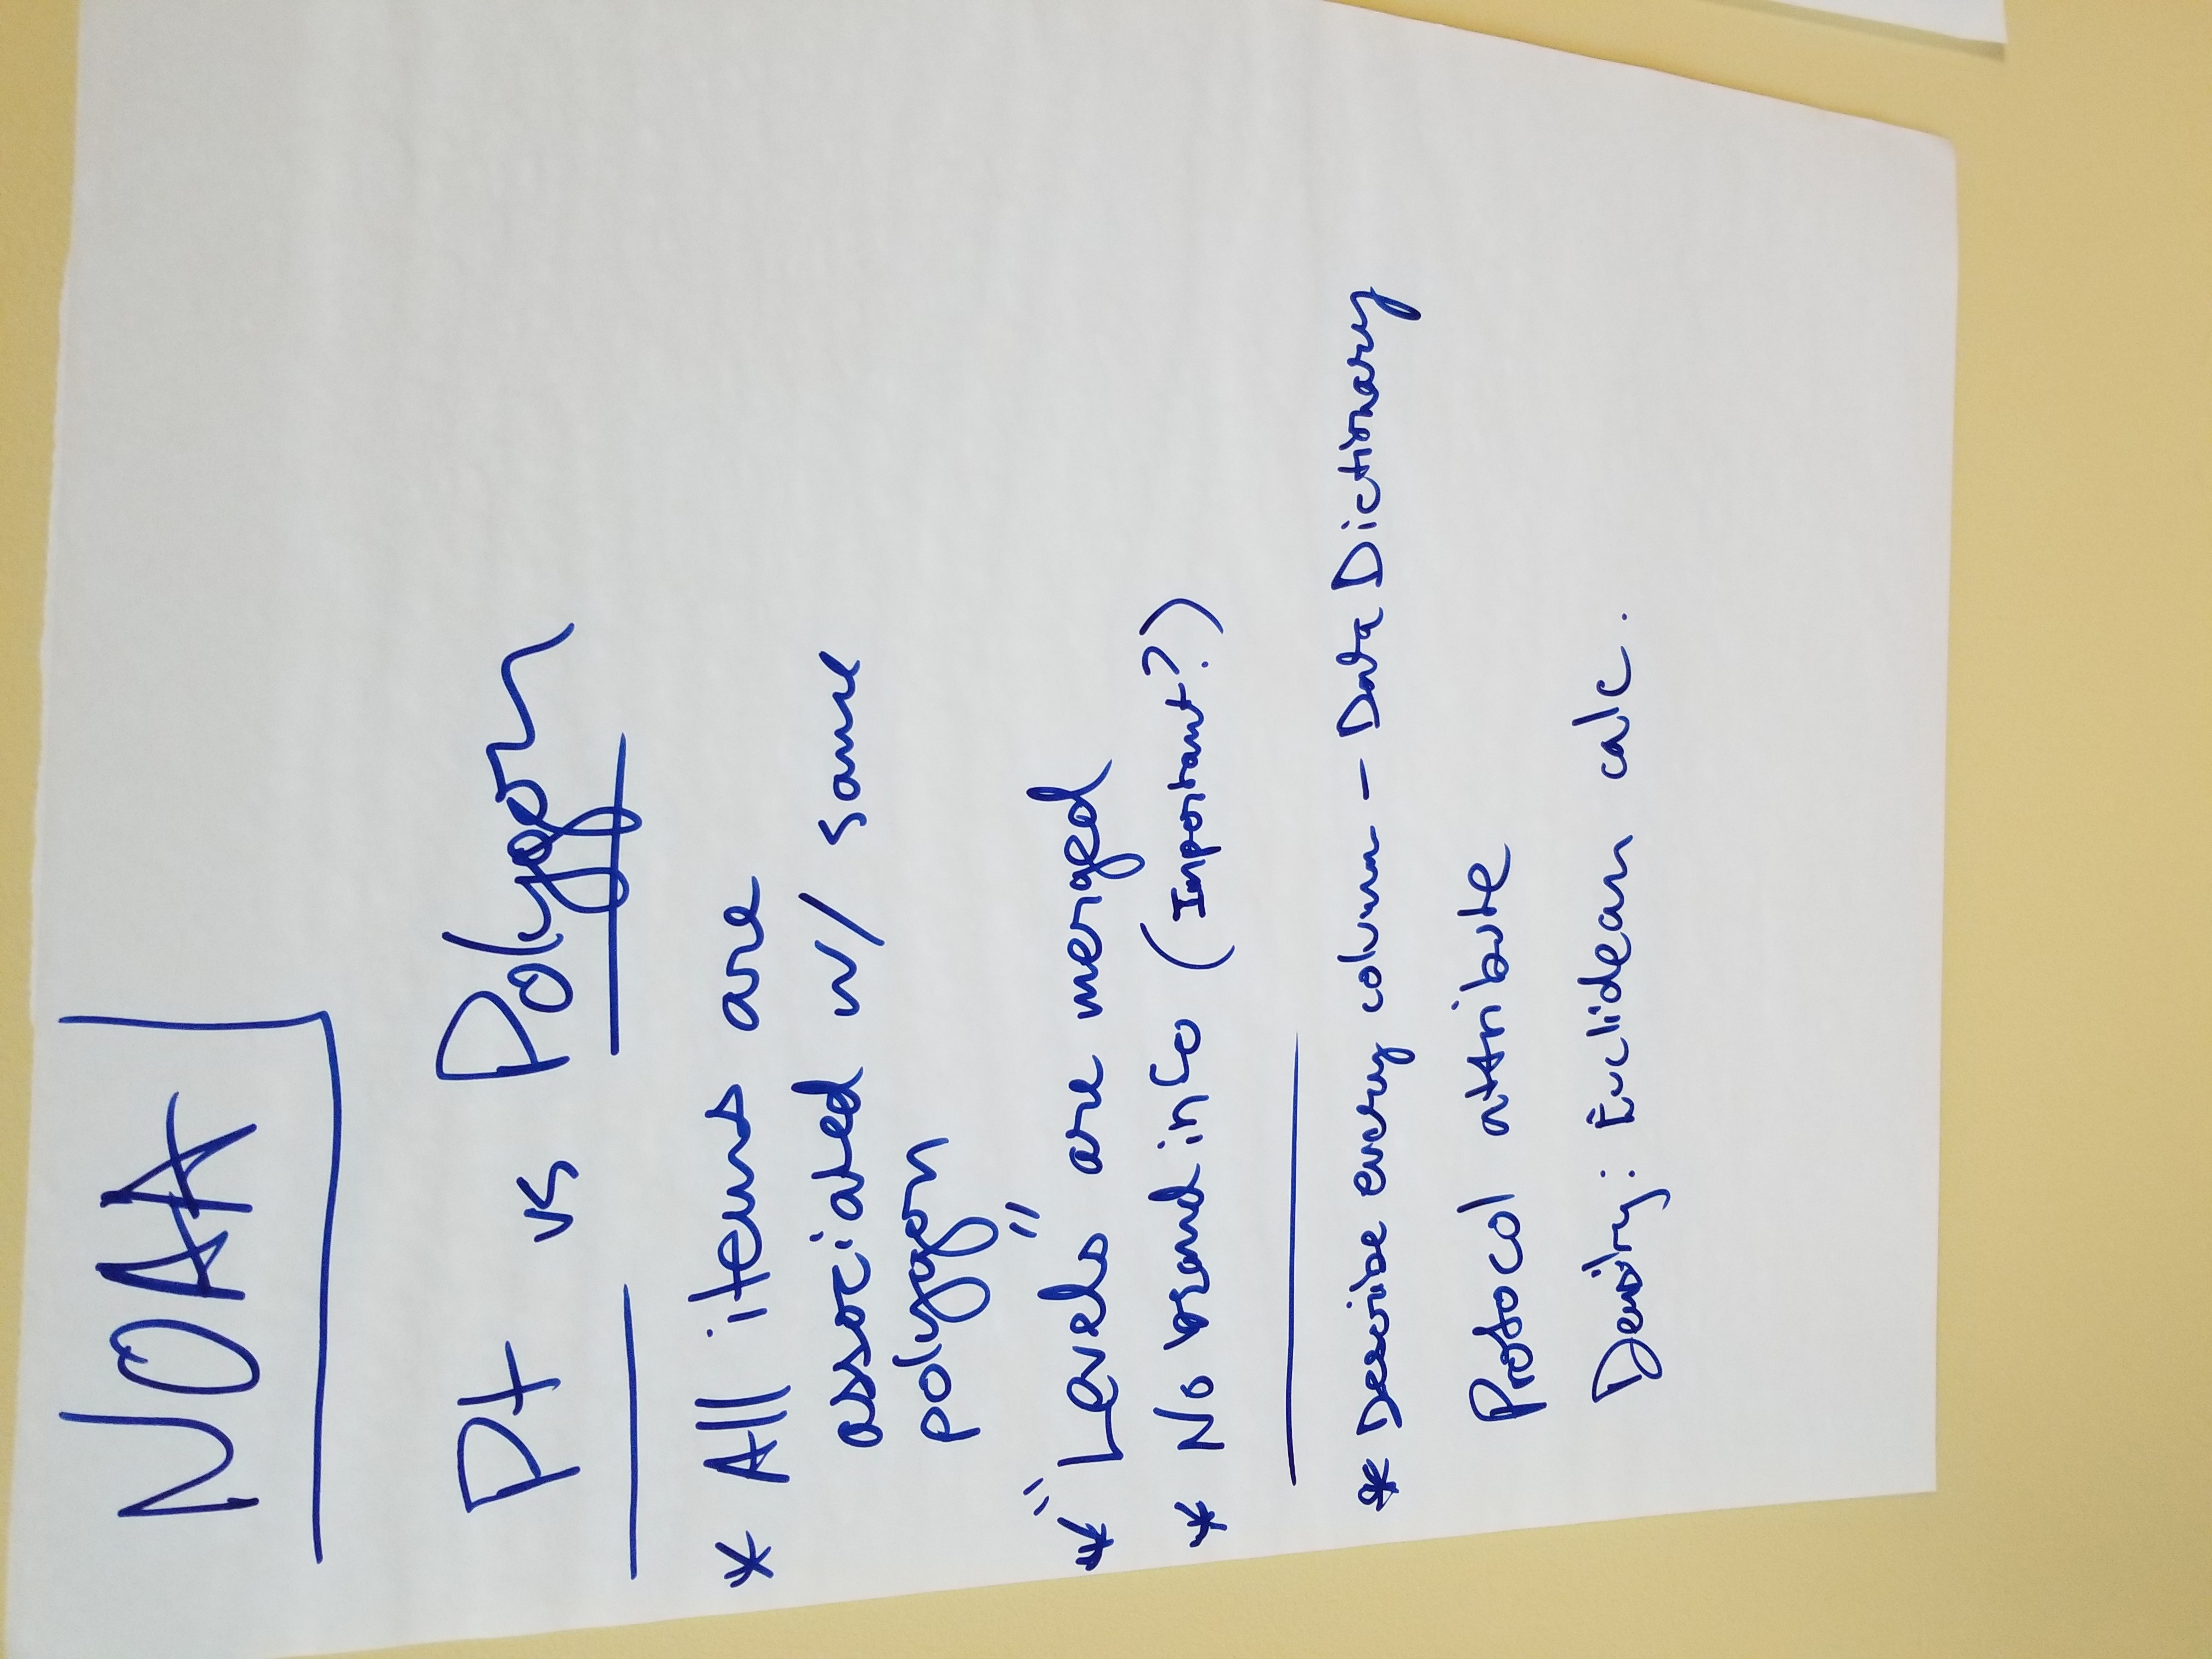 NOAA
Pt vs Polygon
* All items are
associated w/ same
polygon
* "Levels" are merged
* No brand info (Important?)
* Describe every column - Data Dictionary
Protocol attribute
Density: Euclidean calc.